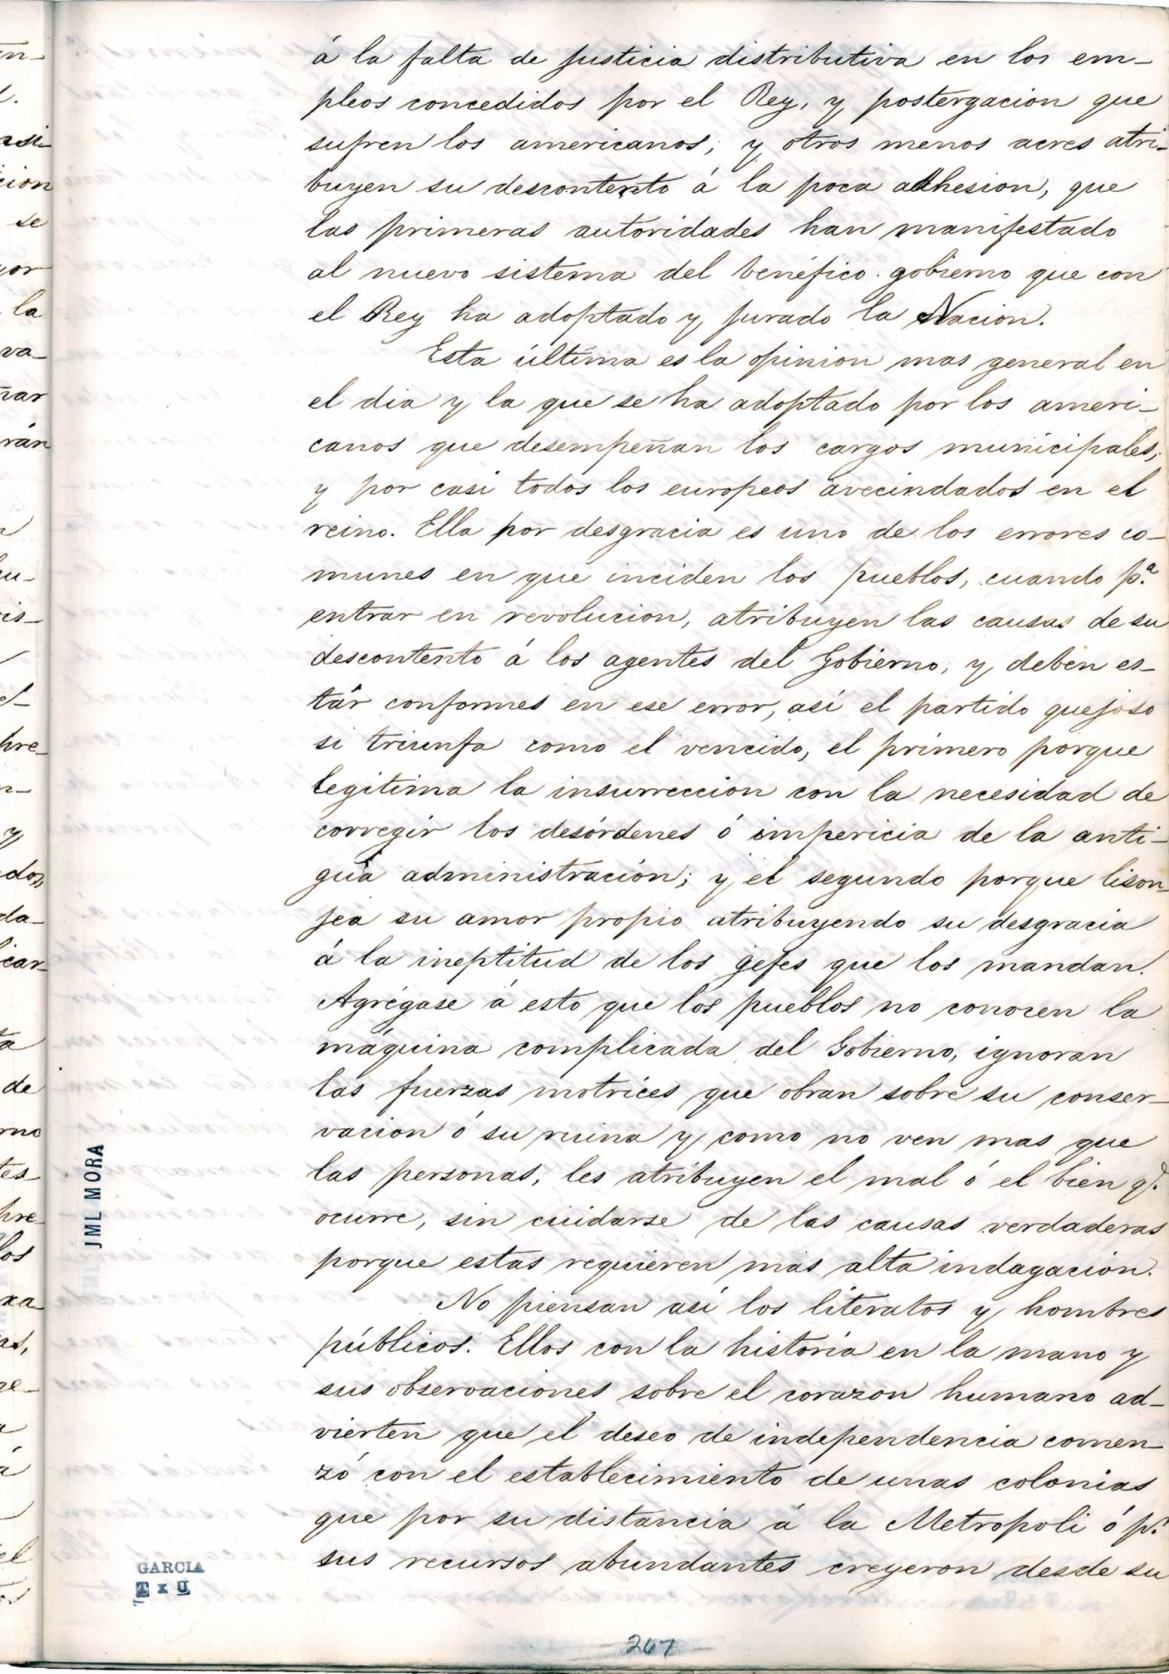 á la falta de justicia distributiva en los em-
pleos concedidos por el Rey, y postergacion que
sufren los americanos; y otros menos acres atri-
buyen su descontento á la poca adhesion, que
las primeras autoridades han manifestado
al nuevo sistema del benéfico gobierno que con
el Rey ha adoptado y jurado la Nacion.
Esta última es la opinion mas general en
el dia y la que se ha adoptado por los ameri-
canos que desempeñan los cargos municipales,
y por casi todos los europeos avecindados en el
reino. Ella por desgracia es uno de los errores co-
munes en que inciden los pueblos, cuando p.ª
entrar en revolucion, atribuyen las causas de su
descontento á los agentes del Gobierno, y deben es-
tár conformes en ese error, así el partido quejoso
si triunfa como el vencido, el primero porque
legitima la insurreccion con la necesidad de
corregir los desórdenes ó impericia de la anti-
gua administración; y el segundo porque lison-
jea su amor propio atribuyendo su desgracia
á la ineptitud de los gefes que los mandan.
Agrégase á esto que los pueblos no conocen la
máquina complicada del Gobierno, ignoran
las fuerzas motrices que obran sobre su conser-
vacion ó su ruina y como no ven mas que
las personas, les atribuyen el mal ó el bien q.e
ocurre, sin cuidarse de las causas verdaderas
porque estas requieren más alta indagacion.
No piensan así los literatos y hombres
públicos. Ellos con la história en la mano y
sus observaciones sobre el corazon humano ad-
vierten que el deseo de independencia comen-
zó con el establecimiento de unas colonias
que por su distancia á la Metropoli ó p.r
sus recursos abundantes creyeron desde su
JML MORA
GARCIA
T x U
267